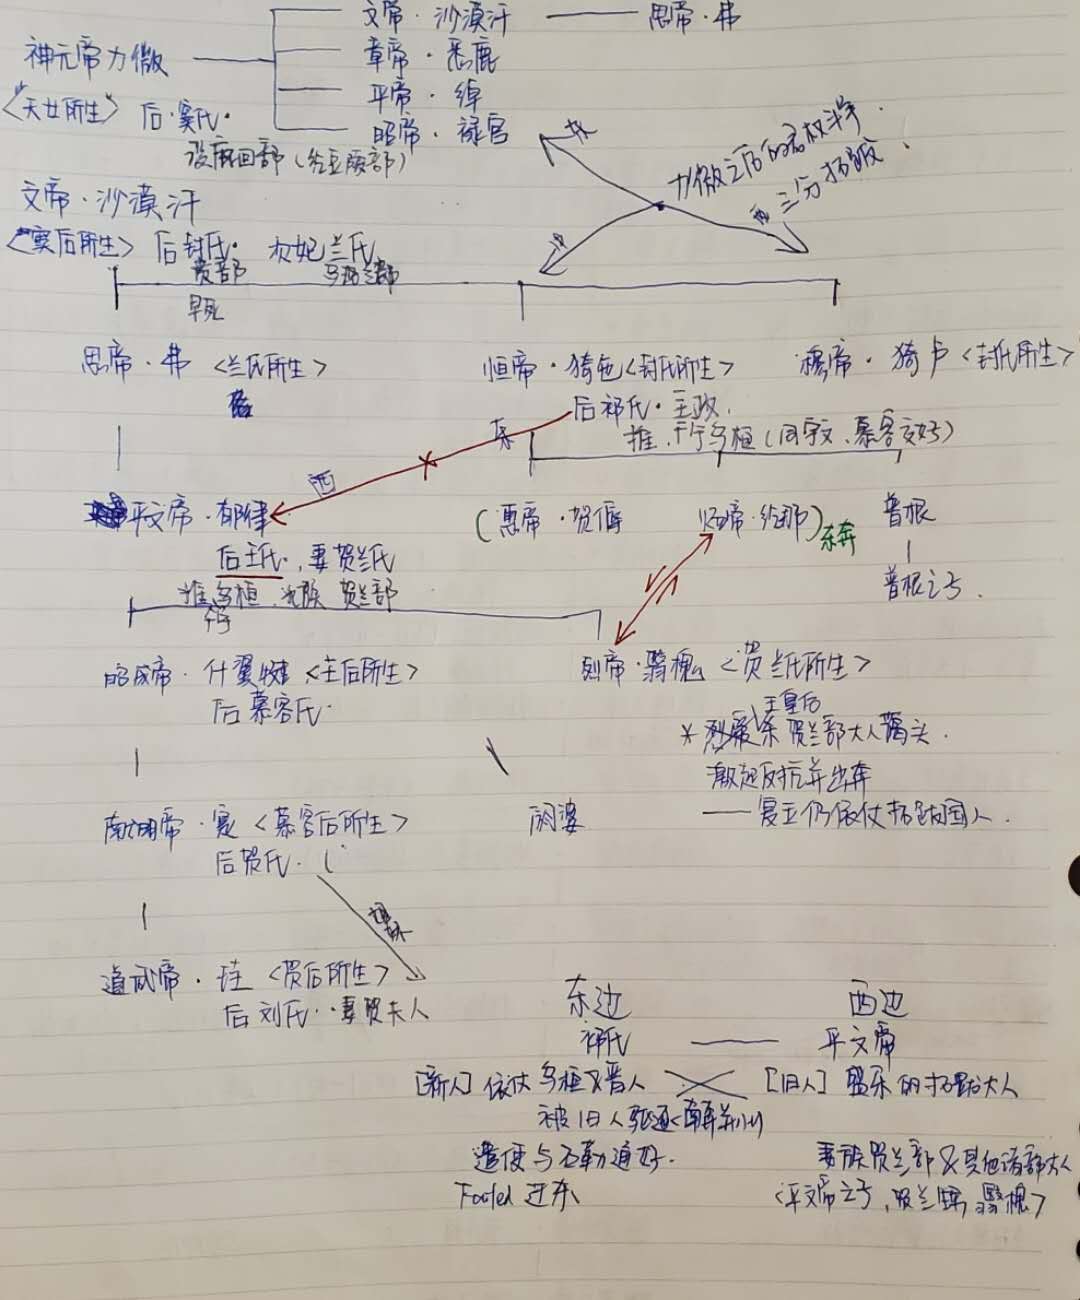 文帝·沙漠汗 —— 思帝·弗
神元帝力微
章帝·悉鹿
平帝·绰
<天女所生> 后·窦氏·
昭帝·禄官
没鹿回部(纥豆陵部)
力微之后的君权斗争
三分拓跋
文帝·沙漠汗
<窦后所生> 后封氏· 次妃兰氏
贲部
早死
思帝·弗 <兰氏所生>
恒帝·猗㐌<封氏所生>
穆帝·猗卢<封氏所生>
后祁氏·主政.
东
西
平文帝·郁律
(惠帝·贺傉
炀帝·纥那)
东奔
普根
后王氏·, 妻贺兰氏
普根之子.
昭成帝·什翼犍 <王后所生>
烈帝·翳槐 <贺兰氏所生>
后慕容氏·
王皇后
贺兰部大人蔼头.
激起反抗并出奔
—— 复立仍依仗拓跋国人.
献明帝·寔 <慕容后所生>
阏婆
后贺氏·
道武帝·珪 <贺后所生>
后刘氏·
东边 西边
祁氏 —— 平文帝
[新人] 依仗乌桓及晋人
[旧人] 盛乐的拓跋大人
被旧人驱逐
遣使与石勒通好.
妻族贺兰部及其他诸部大人
Fooled